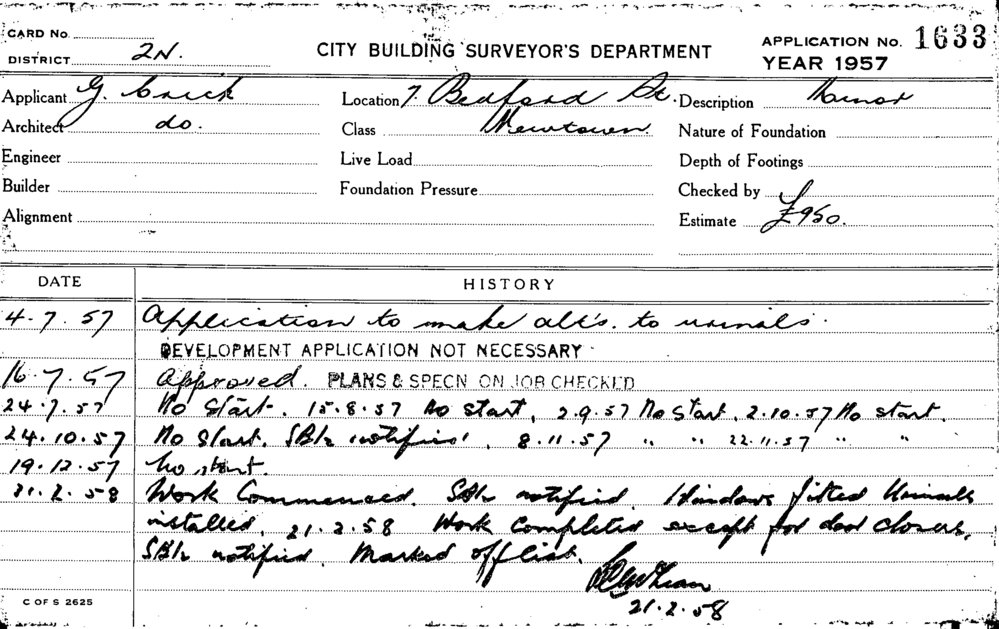 CARD No.
DISTRICT 2N.
CITY BUILDING SURVEYOR'S DEPARTMENT
APPLICATION No. 1633
YEAR 1957
Applicant G. Crick Location 7. Bedford St. Description Minor
Architect do. Class Newtown. Nature of Foundation
Engineer Live Load Depth of Footings
Builder Foundation Pressure Checked by
Alignment Estimate £950.
DATE HISTORY
4.7.57 Application to make alt's. to urinals.
DEVELOPMENT APPLICATION NOT NECESSARY
16.7.57 Approved. PLANS & SPECN ON JOB CHECKED
24.7.57 No start. 15.8.57 No start, 2.9.57 No start, 2.10.57 No start.
24.10.57 No start. SBI notified. 8.11.57 " " 22.11.57 " "
19.12.57 No start.
21.2.58 Work Commenced. notified. Windows fitted Urinals
installed. 21.2.58 Work completed except for door closers.
notified. Marked off list.
21.2.58
C OF S 2625